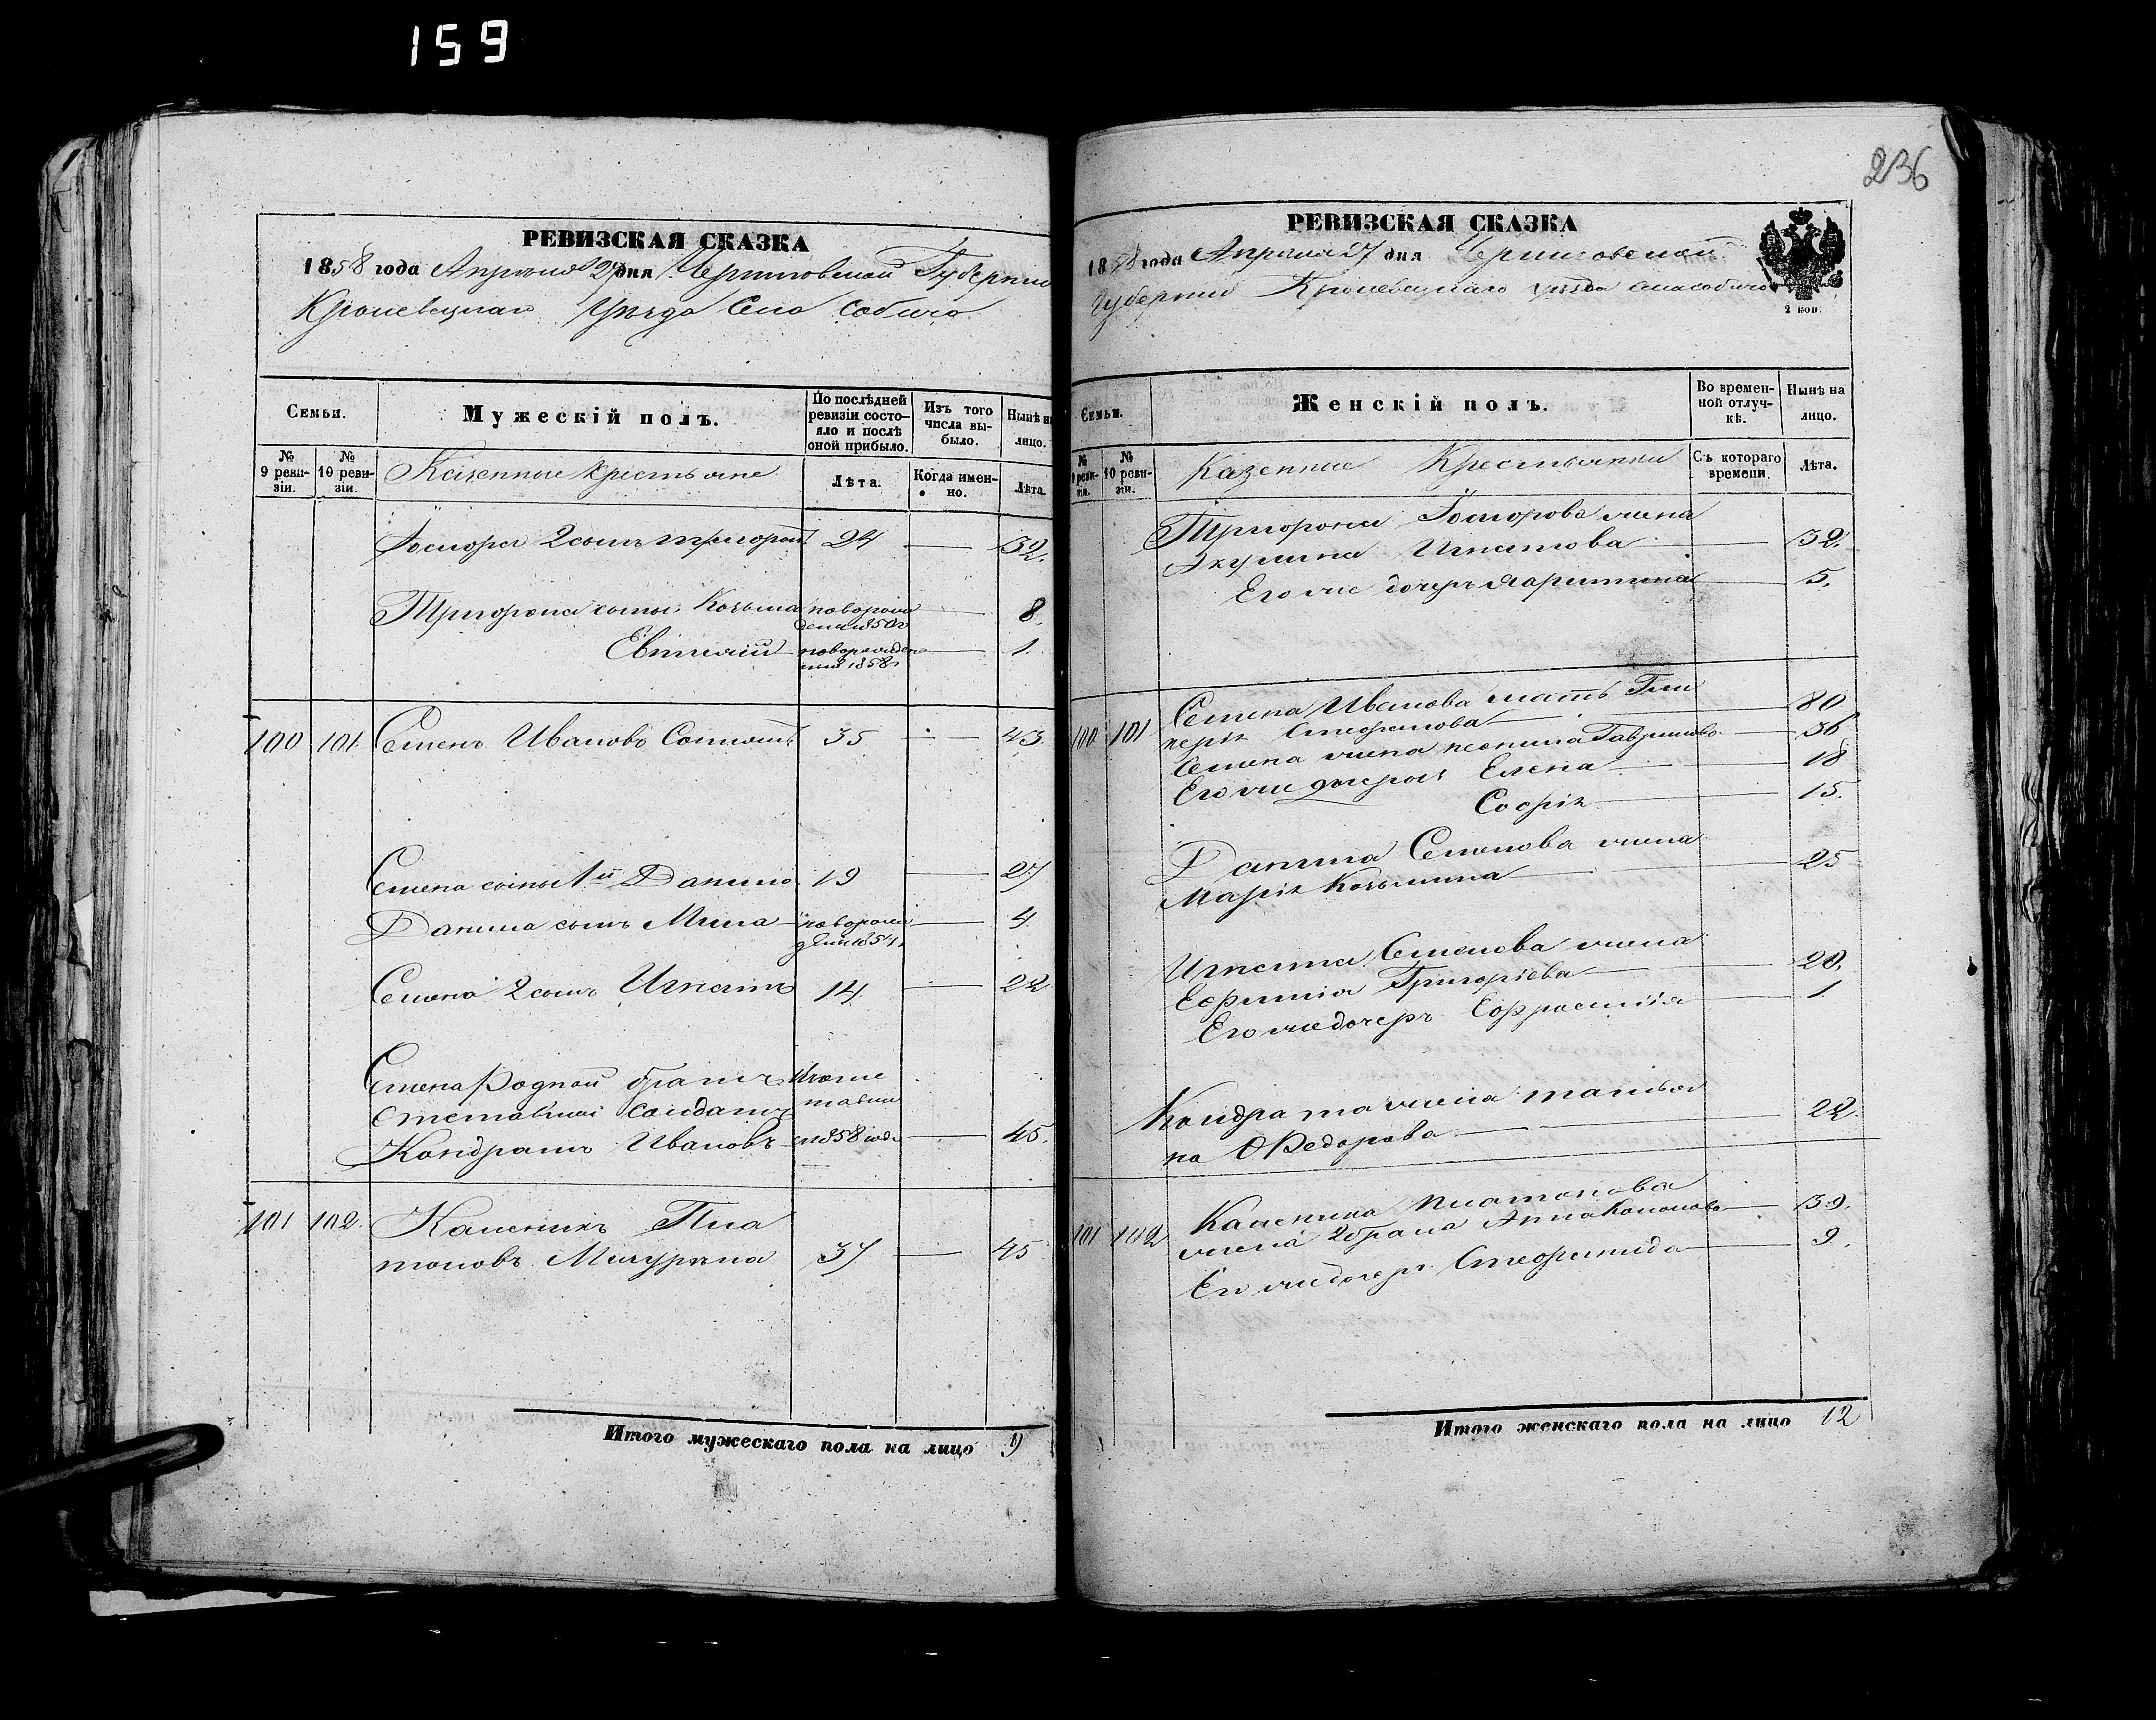 159
236
РЕВИЗСКАЯ СКАЗКА
1858 года Апреля 27 дня Черниговской Губернии
Кролевецкаго Уезда Село Собичо
Семьи.
Мужескій полъ.
По послѣдней ревизіи состо-яло и послѣ оной прибыло.
Изъ того числа вы-было.
Нынѣ на лицо.
№ 9 реви-зіи.
№ 10 реви-зіи.
Казенные крестьяне
Лѣта.
Когда имен-но.
Лѣта.
2 сынъ 24 — 32.
сыны Козьма новорож денный 1850 — 8.
Евтихій новорожден ный 1858 — 1.
100 101. Семенъ Ивановъ 35 — 43.
Семена сыны 1й Данило 19 — 27
Данила сынъ новорож — 4.
Семена 2 сынъ Игнатъ 14. — 22
Семена Родной братъ
солдатъ
Кондратъ Ивановъ 1858 года — 45.
101 102. Каленикъ Пла
тоновъ 37 — 45
Итого мужескаго пола на лицо 9
РЕВИЗСКАЯ СКАЗКА
1858 года Апреля 27 дня Черниговской
Губернии Кролевецкаго уезда села собичо
2 коп.
Семьи.
Женскій полъ.
Во времен-ной отлуч-кѣ.
Нынѣ на лицо.
№ 9 реви-зіи.
№ 10 реви-зіи.
Казенные Крестьянки
Съ котораго времени.
Лѣта.
жена
Акулина Игнатова — 32.
Его же дочерь — 5.
100 101 Семена Иванова мать Гли
керія Стефанова — 80
Семена жена Гаврилова — 36
Его же дочери Елена — 18
Софія — 15.
Данила Семенова жена
Марія Козьмина — 25
Игната Семенова жена
Ефимія Григоріева — 20.
Его же дочерь Ефросинія — 1
Кондрата жена Татья
на Федорова — 22.
101 102 Каленика Платонова
жена 2 брака Анна — 39.
Его же дочерь — 9.
Итого женскаго пола на лицо 12